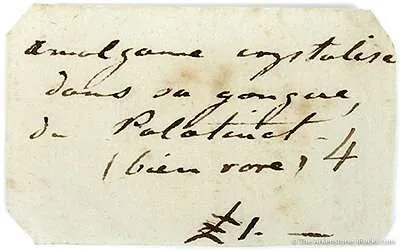 amalgame crystalisé
dans sa gangue,
du Palatinat -
(bien rare) 4
£1. —
© The Arkenstone, iRocks.com